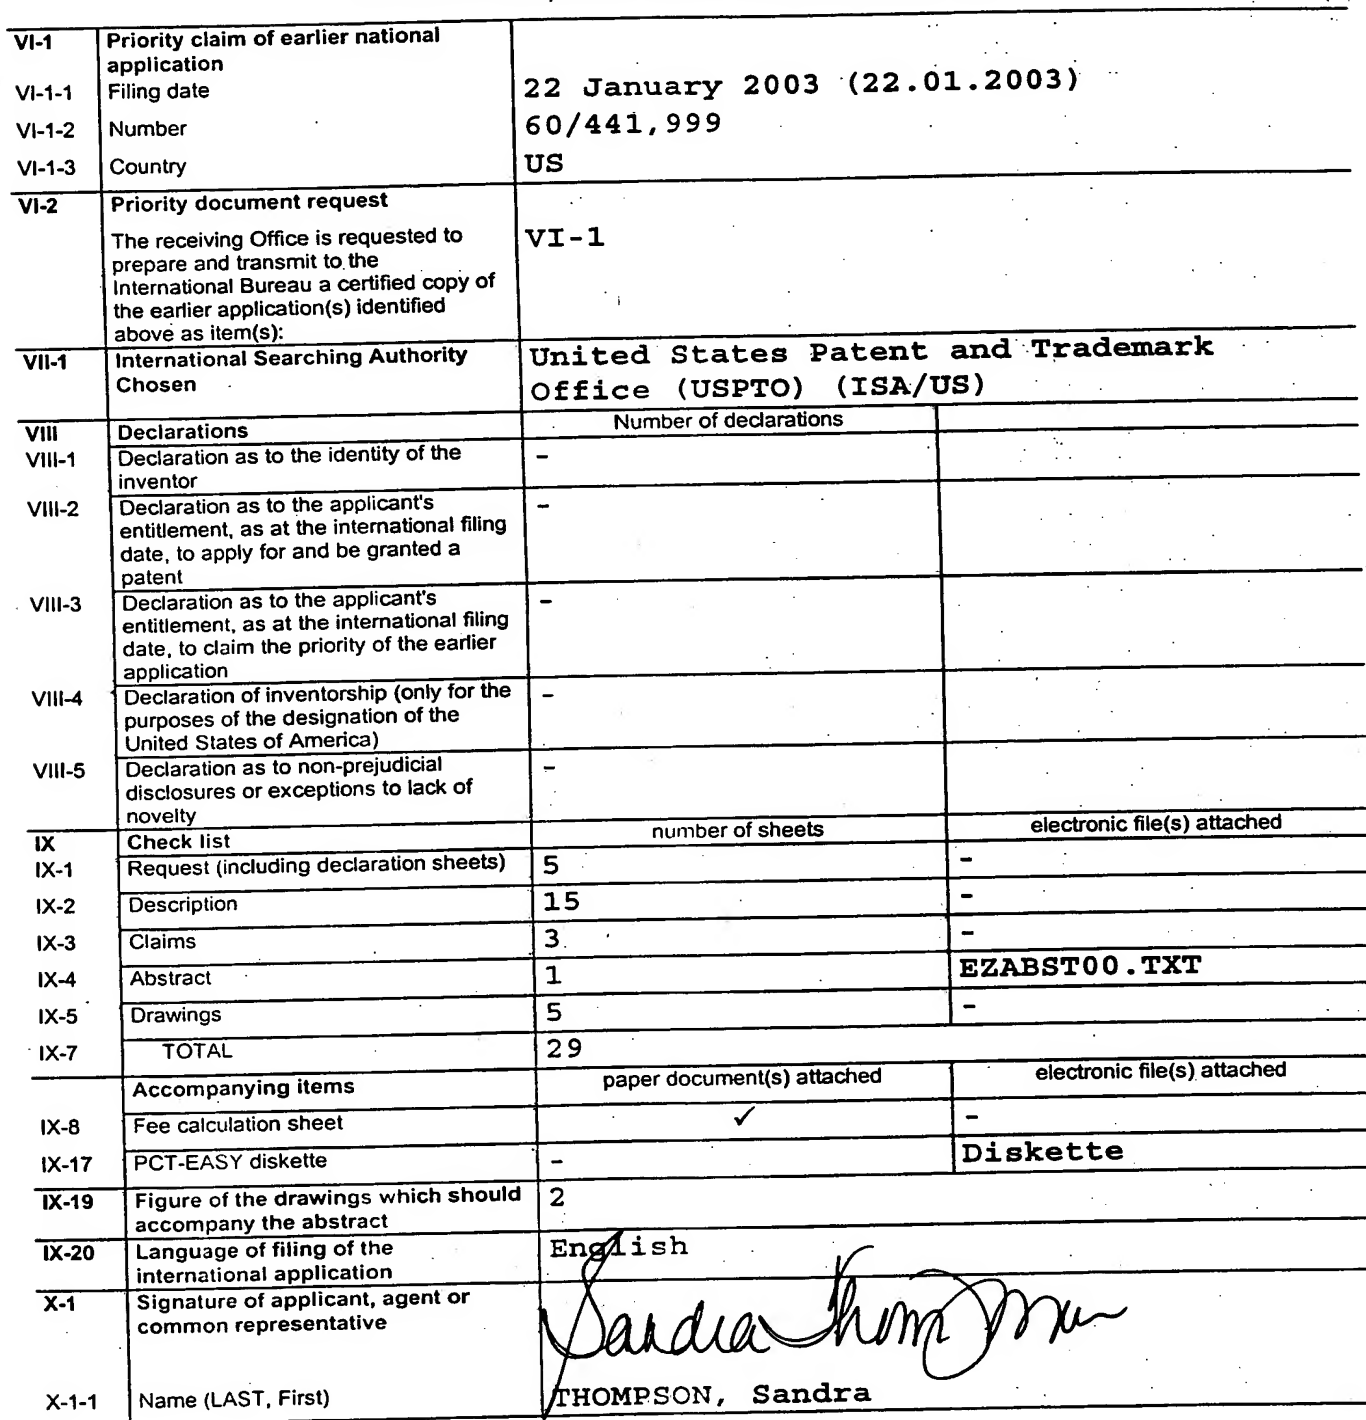 VI-1 Priority claim of earlier national
application
VI-1-1 Filing date 22 January 2003 (22.01.2003)
VI-1-2 Number 60/441,999
VI-1-3 Country US
VI-2 Priority document request
The receiving Office is requested to VI-1
prepare and transmit to the
International Bureau a certified copy of
the earlier application(s) identified
above as item(s):
VII-1 International Searching Authority United States Patent and Trademark
Chosen Office (USPTO) (ISA/US)
VIII Declarations Number of declarations
VIII-1 Declaration as to the identity of the -
inventor
VIII-2 Declaration as to the applicant's -
entitlement, as at the international filing
date, to apply for and be granted a
patent
VIII-3 Declaration as to the applicant's -
entitlement, as at the international filing
date, to claim the priority of the earlier
application
VIII-4 Declaration of inventorship (only for the -
purposes of the designation of the
United States of America)
VIII-5 Declaration as to non-prejudicial -
disclosures or exceptions to lack of
novelty
IX Check list number of sheets electronic file(s) attached
IX-1 Request (including declaration sheets) 5 -
IX-2 Description 15 -
IX-3 Claims 3 -
IX-4 Abstract 1 EZABST00.TXT
IX-5 Drawings 5 -
IX-7 TOTAL 29
Accompanying items paper document(s) attached electronic file(s) attached
IX-8 Fee calculation sheet ✓ -
IX-17 PCT-EASY diskette - Diskette
IX-19 Figure of the drawings which should 2
accompany the abstract
IX-20 Language of filing of the English
international application
X-1 Signature of applicant, agent or
common representative
Sandra Thompson
X-1-1 Name (LAST, First) THOMPSON, Sandra